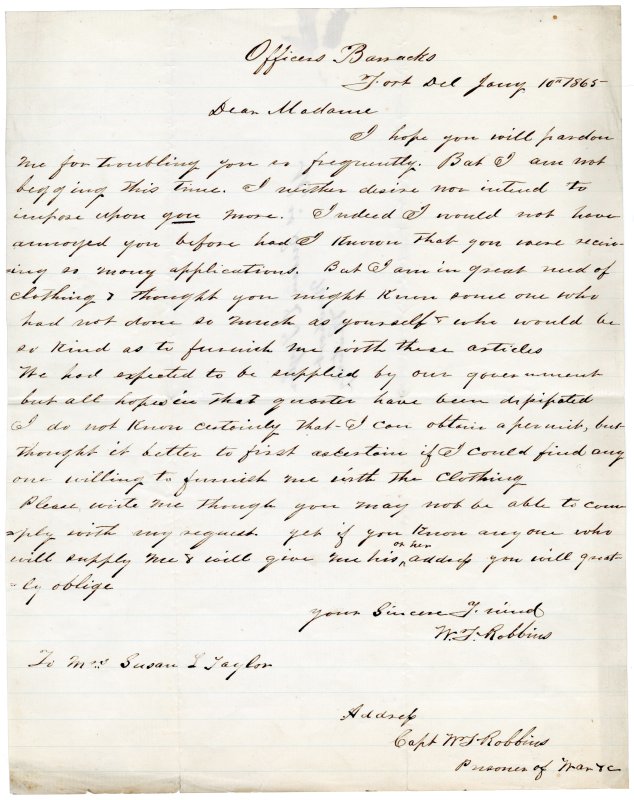 Officers Barracks
Fort Del Jany 10th 1865
Dear Madame
I hope you will pardon
me for troubling you so frequently. But I am not
begging this time. I neither desire nor intend to
impose upon you more. Indeed I would not have
annoyed you before had I known that you were reciev-
ing so many applications. But I am in great need of
clothing & thought you might know some one who
had not done so much as yourself & who would be
so kind as to furnish me with these articles
We had expected to be supplied by our government
but all hopes in that quarter have been dissipated
I do not know certainly that I can obtain a permit, but
thought it better to first ascertain if I could find any
one willing to furnish me with the clothing
Please write me though you may not be able to com
-ply with my request. yet if you know anyone who
will supply me & will give me his or her address you will great-
-ly oblige
Your Sincere Friend
W. F. Robbins
To Mrs Susan L Taylor
Address
Capt W F Robbins
Prisoner of War &c